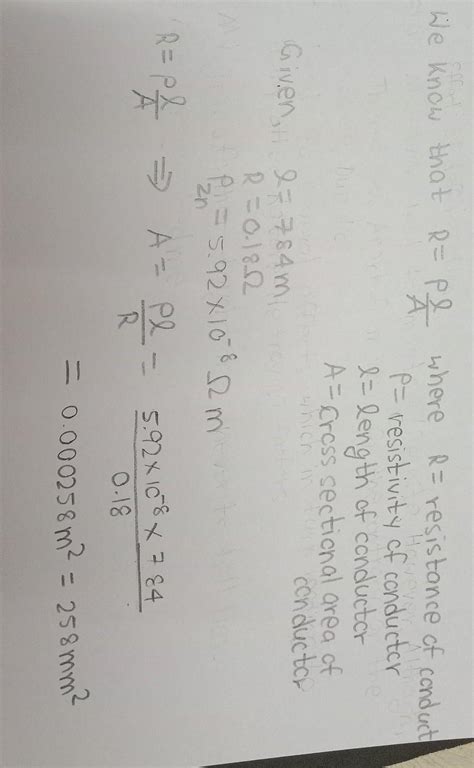 We know that R = ρl/A where R = resistance of conduct
ρ = resistivity of conductor
l = length of conductor
A = Cross sectional area of
conductor
Given, l = 784 m
R = 0.18 Ω
ρ_zn = 5.92 × 10^-8 Ω m
R = ρl/A ⇒ A = ρl/R = 5.92 × 10^-8 × 784 / 0.18
= 0.000258 m² = 258 mm²